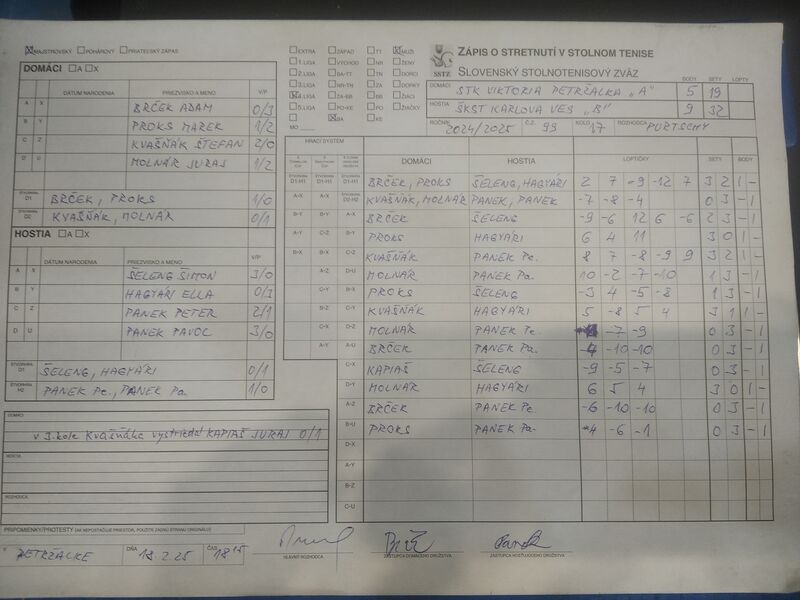 MAJSTROVSKÝ POHÁROVÝ PRIATEĽSKÝ ZÁPAS
EXTRA ZÁPAD TT MUŽI
1. LIGA VÝCHOD NR ŽENY
2. LIGA BA-TT TN DORCI
3. LIGA NR-TN ZA DORKY
4. LIGA ZA-BB BB ŽIACI
5. LIGA PO-KE PO ŽIAČKY
BA KE
MO
ZÁPIS O STRETNUTÍ V STOLNOM TENISE
SSTZ SLOVENSKÝ STOLNOTENISOVÝ ZVÄZ
BODY SETY LOPTY
DOMÁCI STK VIKTORIA PETRŽALKA "A" 5 19
HOSTIA ŠKST KARLOVA VES "B" 9 32
ROČNÍK 2024/2025 Č.Z. 99 KOLO 17 ROZHODCA PURTSCHY
DOMÁCI A X
DÁTUM NARODENIA PRIEZVISKO A MENO V/P
A X BRČEK ADAM 0/3
B Y PROKS MAREK 1/2
C Z KVAŠŇÁK ŠTEFAN 2/0
D U MOLNÁR JURAJ 1/2
ŠTVORHRA D1 BRČEK, PROKS 1/0
ŠTVORHRA D2 KVAŠŇÁK, MOLNÁR 0/1
HOSTIA A X
DÁTUM NARODENIA PRIEZVISKO A MENO V/P
A X ŠELENG ŠIMON 3/0
B Y HAGYÁRI ELLA 0/3
C Z PANEK PETER 2/1
D U PANEK PAVOL 3/0
ŠTVORHRA ŠELENG, HAGYÁRI 0/1
ŠTVORHRA H2 PANEK Pe., PANEK Pa. 1/0
DOMÁCI
v 3. kole Kvašňáka vystriedal KAPIAŠ JURAJ 0/1
HOSTIA
ROZHODCA
PRIPOMIENKY/PROTESTY (AK NEPOSTAČUJE PRIESTOR, POUŽITE ZADNÚ STRANU ORIGINÁLU)
V PETRŽALKE DŇA 18.2.25 ČAS 18 15
HLAVNÝ ROZHODCA ZÁSTUPCA DOMÁCEHO DRUŽSTVA ZÁSTUPCA HOSŤUJÚCEHO DRUŽSTVA
HRACÍ SYSTÉM
DOMÁCI HOSTIA LOPTIČKY SETY BODY
D1-H1 D1-H1 D1-H1 BRČEK, PROKS ŠELENG, HAGYÁRI 2 7 -9 -12 7 3 2 1 -
A-X D2-H2 KVAŠŇÁK, MOLNÁR PANEK, PANEK -7 -8 -4 0 3 - 1
B-Y B-Y A-X BRČEK ŠELENG -9 -6 12 6 -6 2 3 - 1
A-Y C-Z B-Y PROKS HAGYÁRI 6 4 11 3 0 1 -
B-X B-X C-Z KVAŠŇÁK PANEK Pe. 8 7 -8 -9 9 3 2 1 -
A-Z D-U MOLNÁR PANEK Pa. 10 -2 -7 -10 1 3 - 1
C-Y B-X PROKS ŠELENG -3 4 -5 -8 1 3 - 1
B-Z C-Y KVAŠŇÁK HAGYÁRI 5 -8 5 4 3 1 1 -
C-X D-Z MOLNÁR PANEK Pe. -7 -9 0 3 - 1
A-Y A-U BRČEK PANEK Pa. -4 -10 -10 0 3 - 1
C-X KAPIAŠ ŠELENG -9 -5 -7 0 3 - 1
D-Y MOLNÁR HAGYÁRI 6 5 4 3 0 1 -
A-Z BRČEK PANEK Pe. -6 -10 -10 0 3 - 1
B-U PROKS PANEK Pa. -4 -6 -1 0 3 - 1
D-X
A-Y
B-Z
C-U